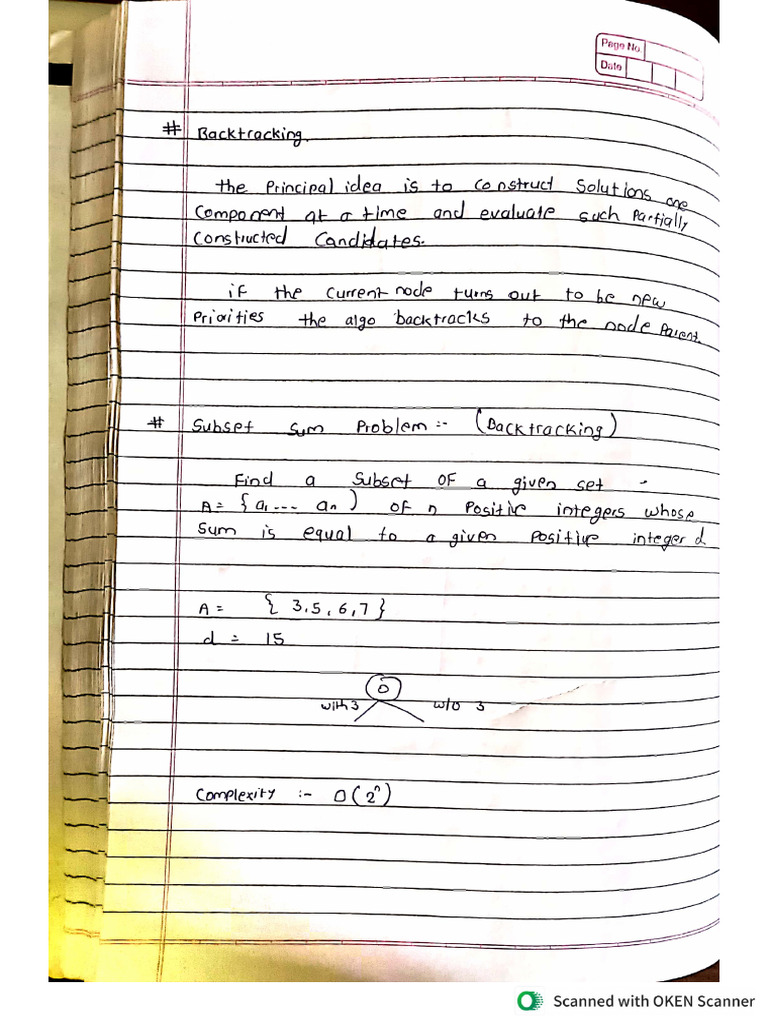 Page No.
Date
# Backtracking.
the Principal idea is to construct Solutions one
Component at a time and evaluate such Partially
Constructed Candidates.
if the current node turns out to be new
Priorities the algo backtracks to the node Parent.
# Subset Sum Problem :- (Backtracking)
Find a Subset OF a given set -
A = {a1 --- an) OF n Positive integers whose
Sum is equal to a given positive integer d
A = { 3, 5, 6, 7 }
d = 15
0
with 3 w/o 3
Complexity :- O(2^n)
Scanned with OKEN Scanner